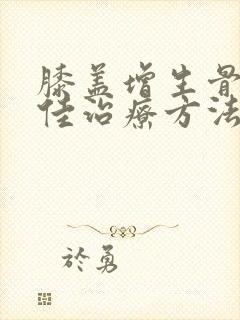 膝盖增生骨
佳治疗方法
於勇